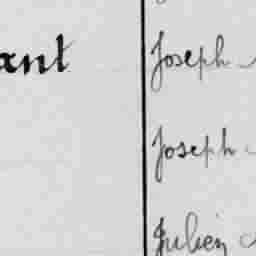 ant Joseph
Joseph
Julien